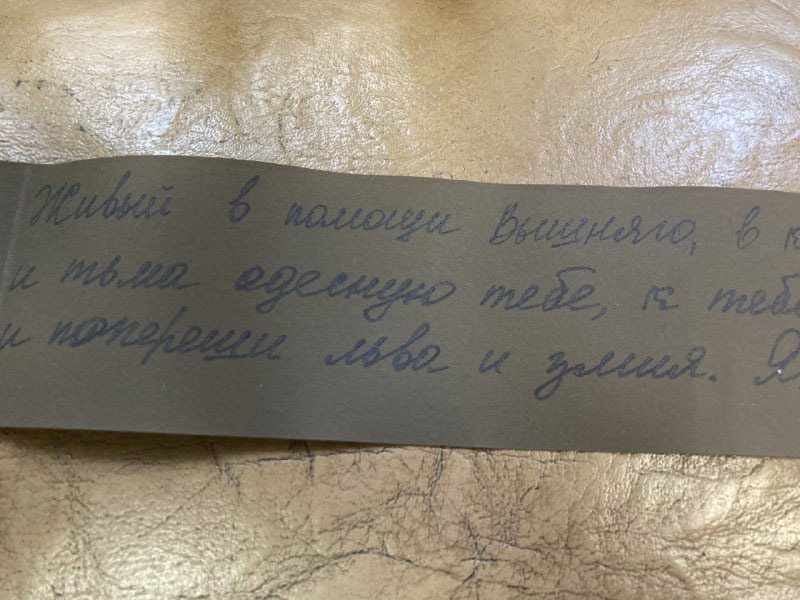 Живый в помощи Вышняго, в к
и тьма одесную тебе, к тебе
и попереши льва и змия. Я